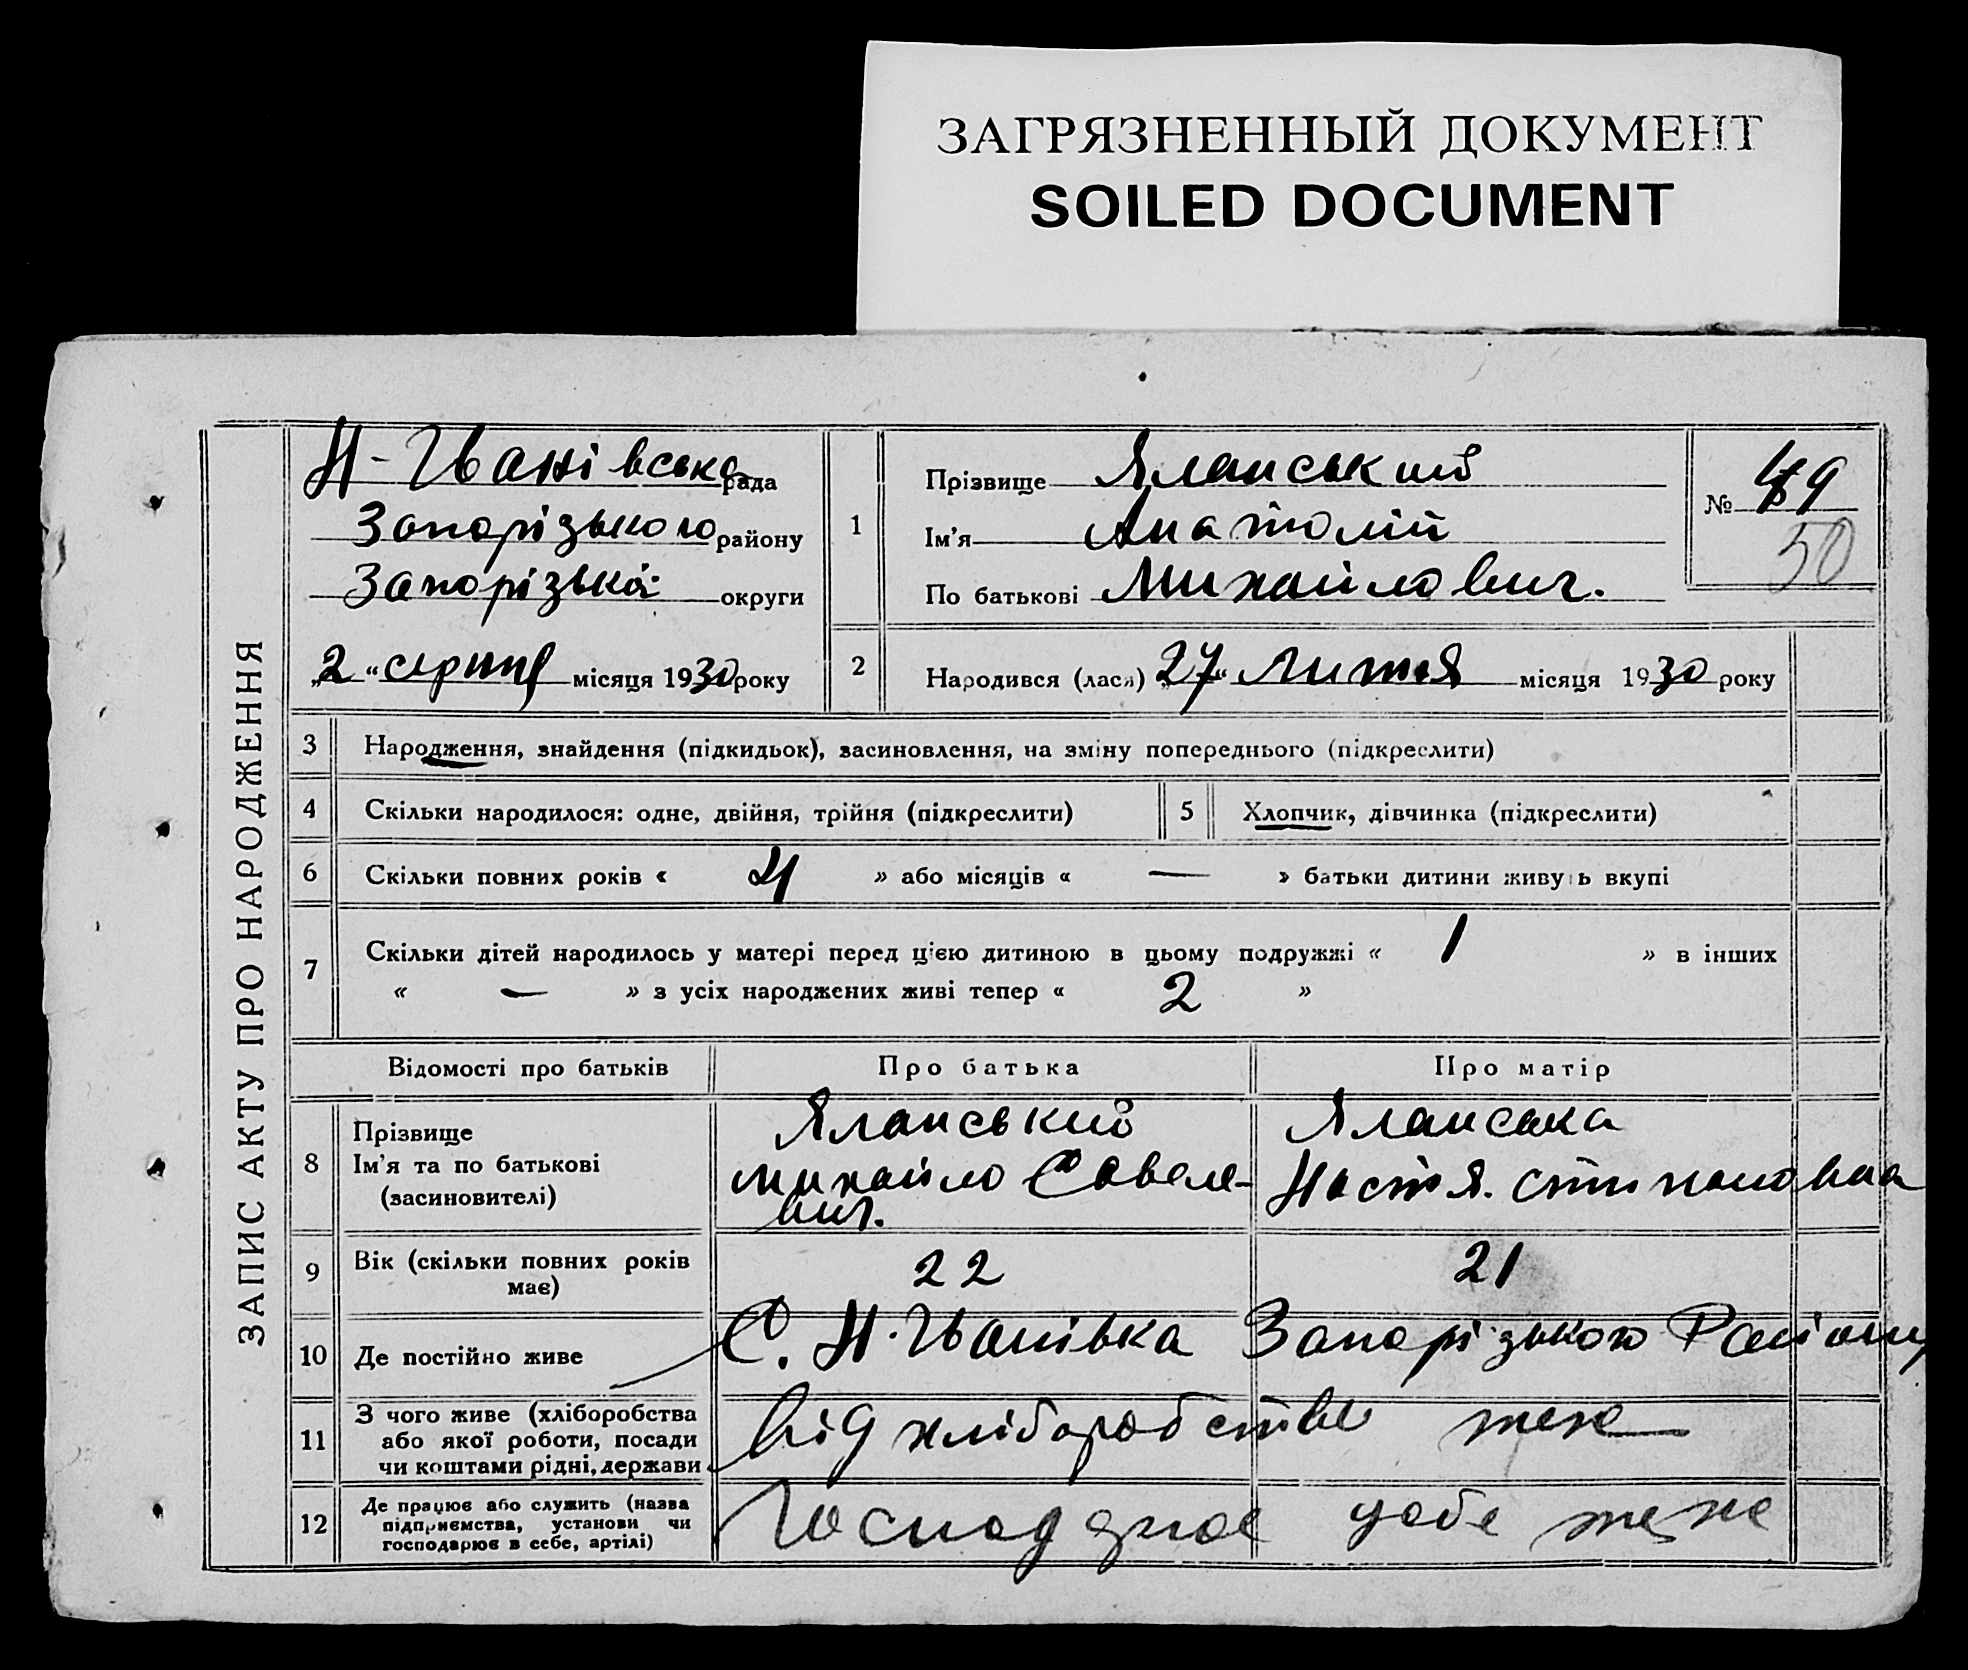 ЗАГРЯЗНЕННЫЙ ДОКУМЕНТ
SOILED DOCUMENT
ЗАПИС АКТУ ПРО НАРОДЖЕННЯ
Н-Іванівська рада
Запорізького району
Запорізької округи
„2“ серпня місяця 1930 року
1
Прізвище Яланський
Ім’я Анатолій
По батькові Михайлович.
№ 49
50
2 Народився (лася) „27“ Лютня місяця 1930 року
3 Народження, знайдення (підкидьок), засиновлення, на зміну попереднього (підкреслити)
4 Скільки народилося: одне, двійня, трійня (підкреслити) 5 Хлопчик, дівчинка (підкреслити)
6 Скільки повних років « 4 » або місяців « — » батьки дитини живуть вкупі
7 Скільки дітей народилось у матері перед цією дитиною в цьому подружжі « 1 » в інших
« — » з усіх народжених живі тепер « 2 »
Відомості про батьків Про батька Про матір
8 Прізвище
Ім’я та по батькові
(засиновителі)
Яланський
Михайло Савеле-
вич.
Яланська
Настя.
9 Вік (скільки повних років
має)
22 21
10 Де постійно живе С. Н-Іванівка Запорізького Району
11 З чого живе (хліборобства
або якої роботи, посади
чи коштами рідні, держави
від хліборобства теж
12 Де працює або служить (назва
підприємства, установи чи
господарює в себе, артілі)